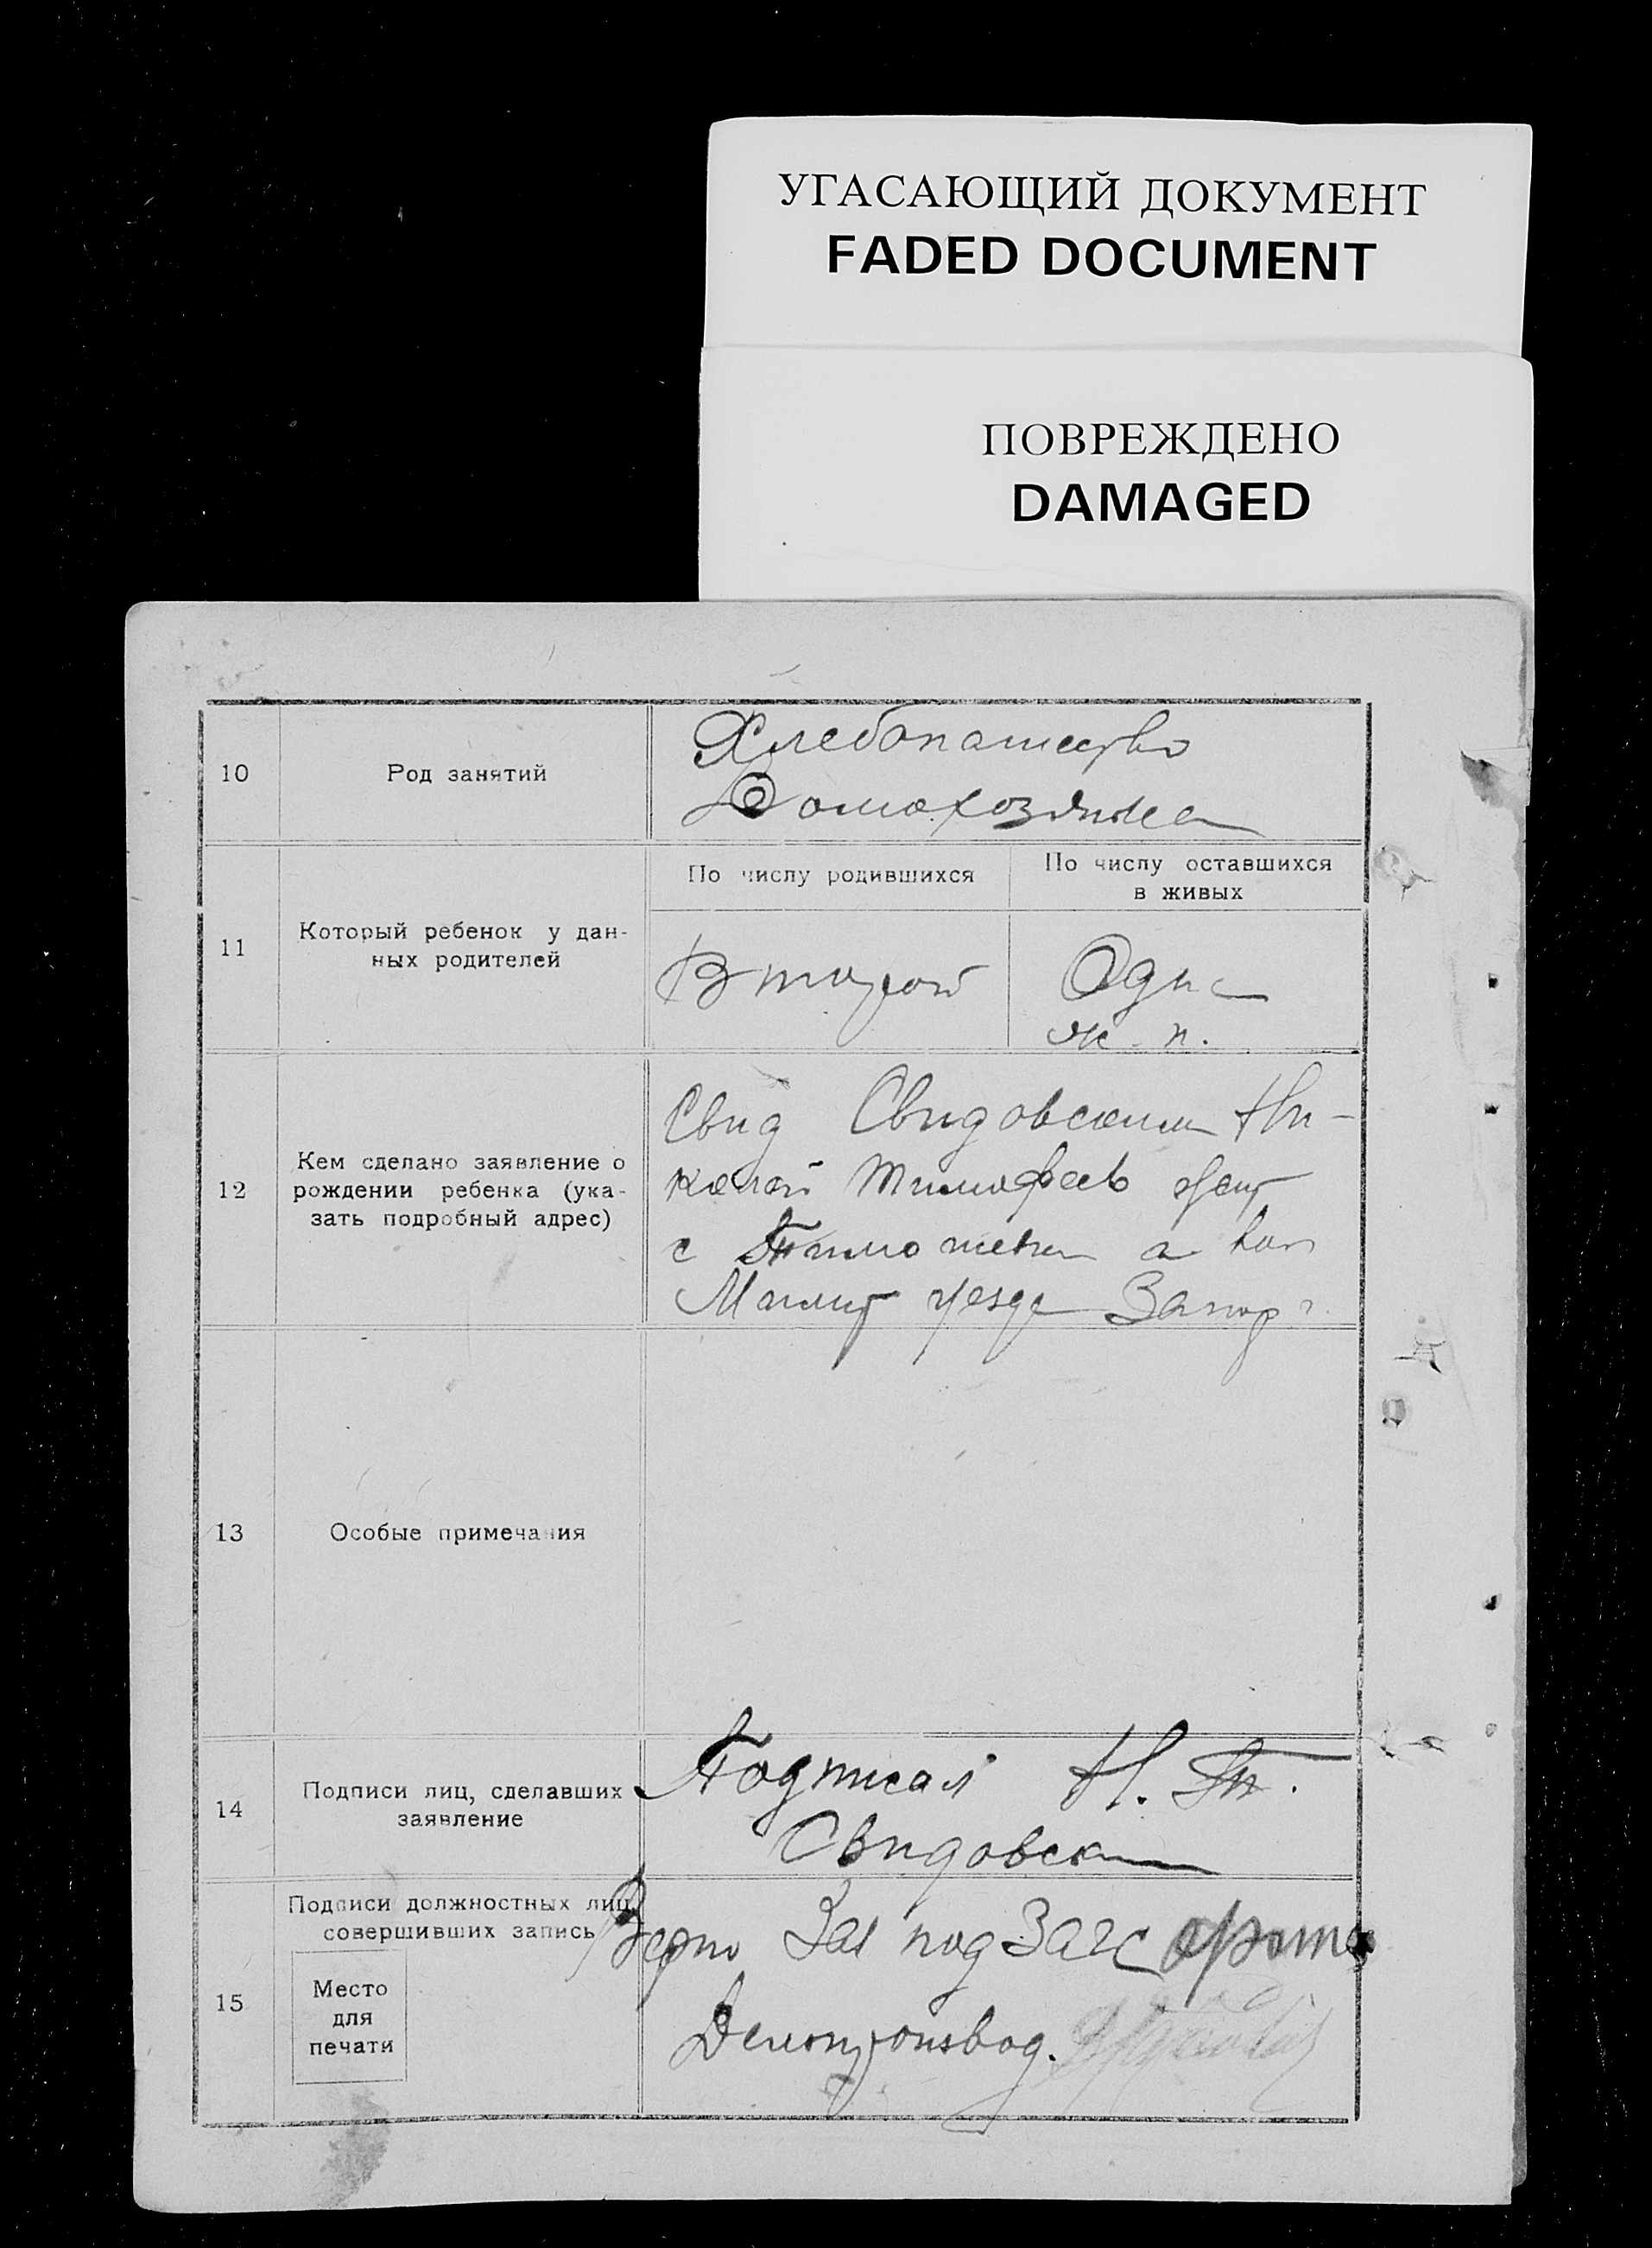 УГАСАЮЩИЙ ДОКУМЕНТ
FADED DOCUMENT
ПОВРЕЖДЕНО
DAMAGED
10
Род занятий
Хлебопашество
Домохозяйка
11
Который ребенок у дан-
ных родителей
По числу родившихся
По числу оставшихся
в живых
Второй
Один
ж. п.
12
Кем сделано заявление о
рождении ребенка (ука-
зать подробный адрес)
Свид Свидовский Ни-
колай Тимофеев
с Тимошевка
уезда Запор г.
13
Особые примечания
14
Подписи лиц, сделавших
заявление
Подписал Н. Т.
Свидовский
15
Подписи должностных лиц,
совершивших запись
Место
для
печати
Верно Зав под Загс
Делопроизвод.